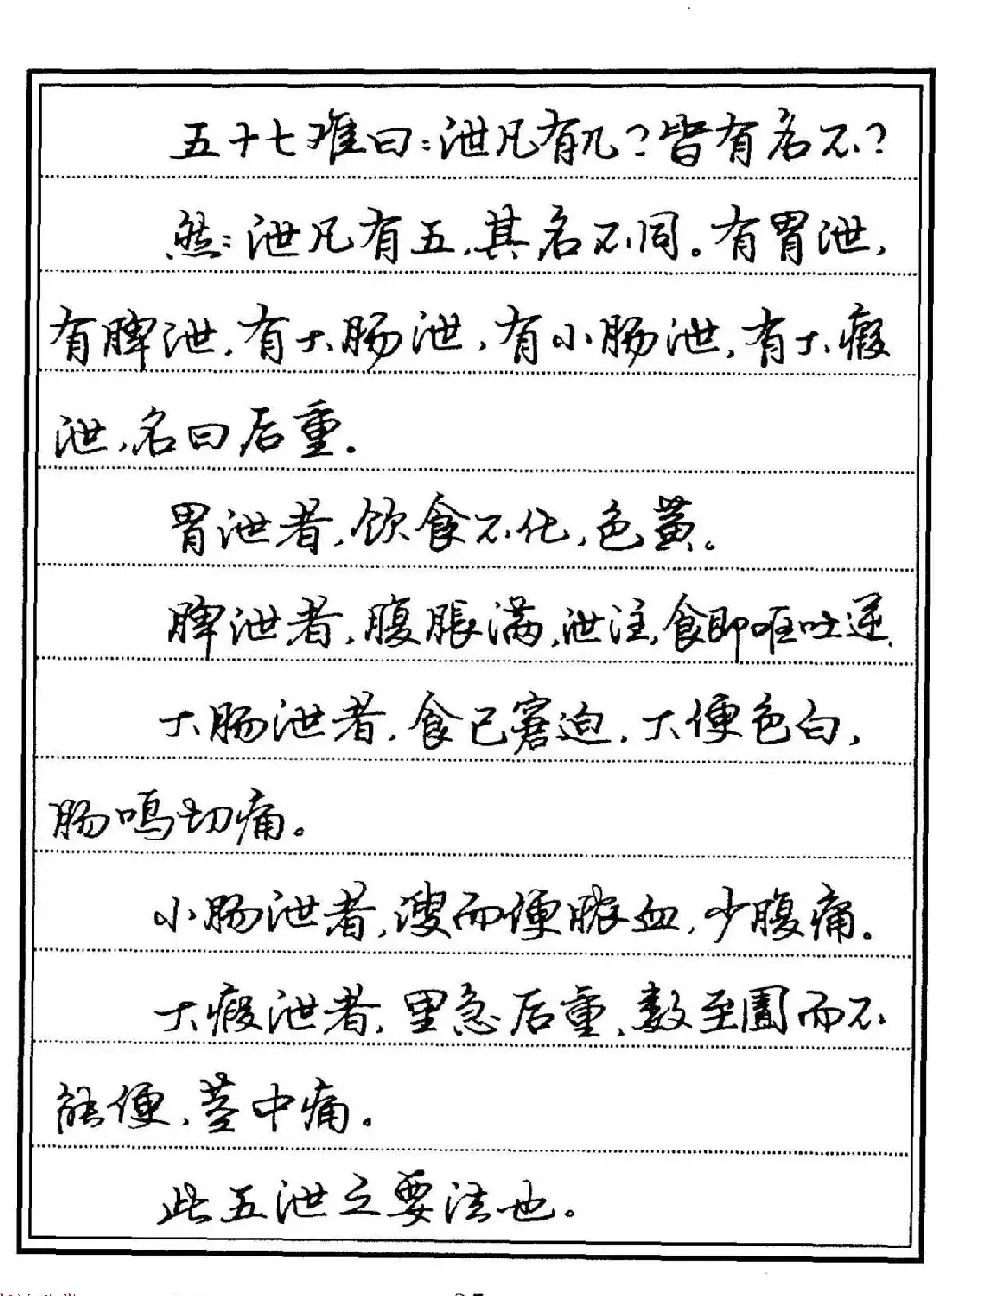 五十七难曰:泄凡有几?皆有名不?
然:泄凡有五,其名不同。有胃泄,
有脾泄,有大肠泄,有小肠泄,有大瘕
泄,名曰后重.
胃泄者,饮食不化,色黄。
脾泄者,腹胀满,泄注,食即呕吐逆.
大肠泄者,食已窘迫,大便色白,
肠鸣切痛。
小肠泄者,溲而便脓血,少腹痛。
大瘕泄者,里急后重,数至圊而不
能便,茎中痛。
此五泄之要法也。